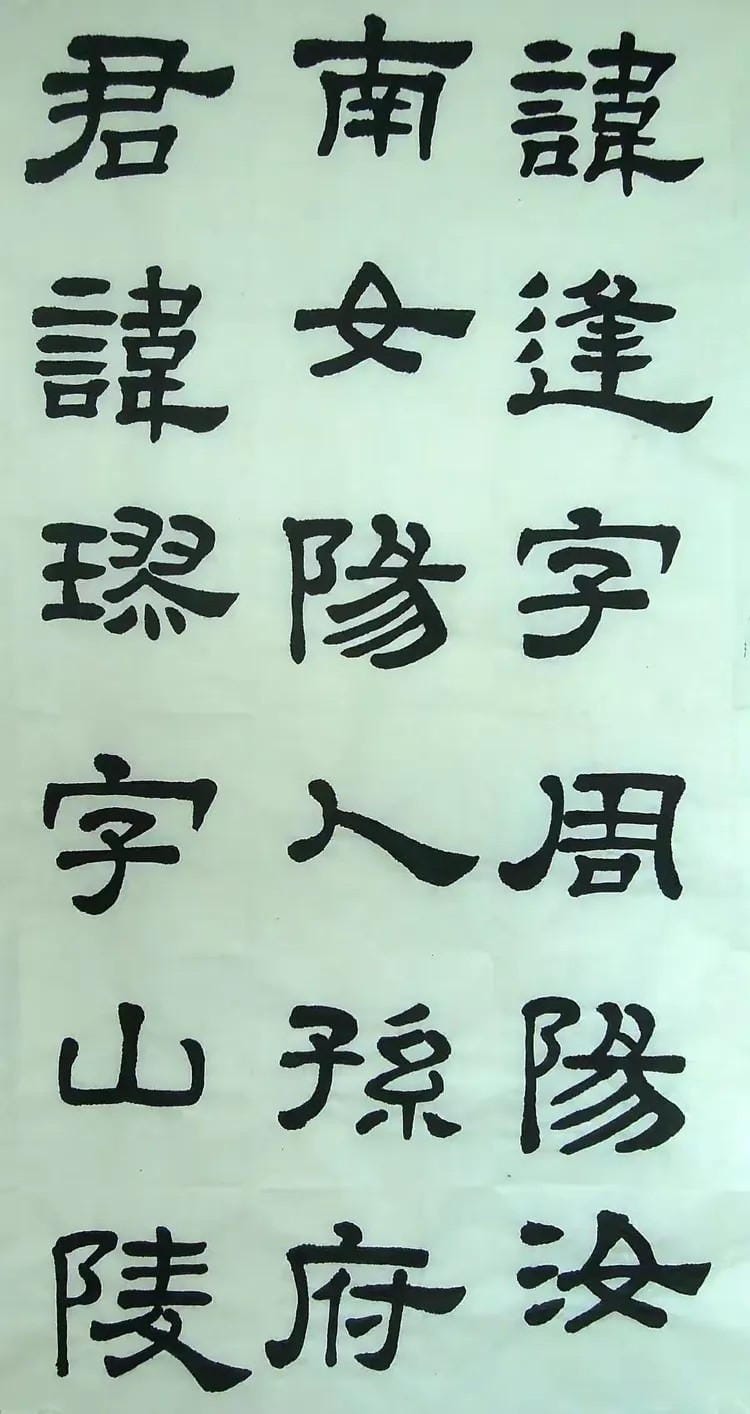 諱逢字周陽汝
南女陽人孫府
君諱璆字山陵